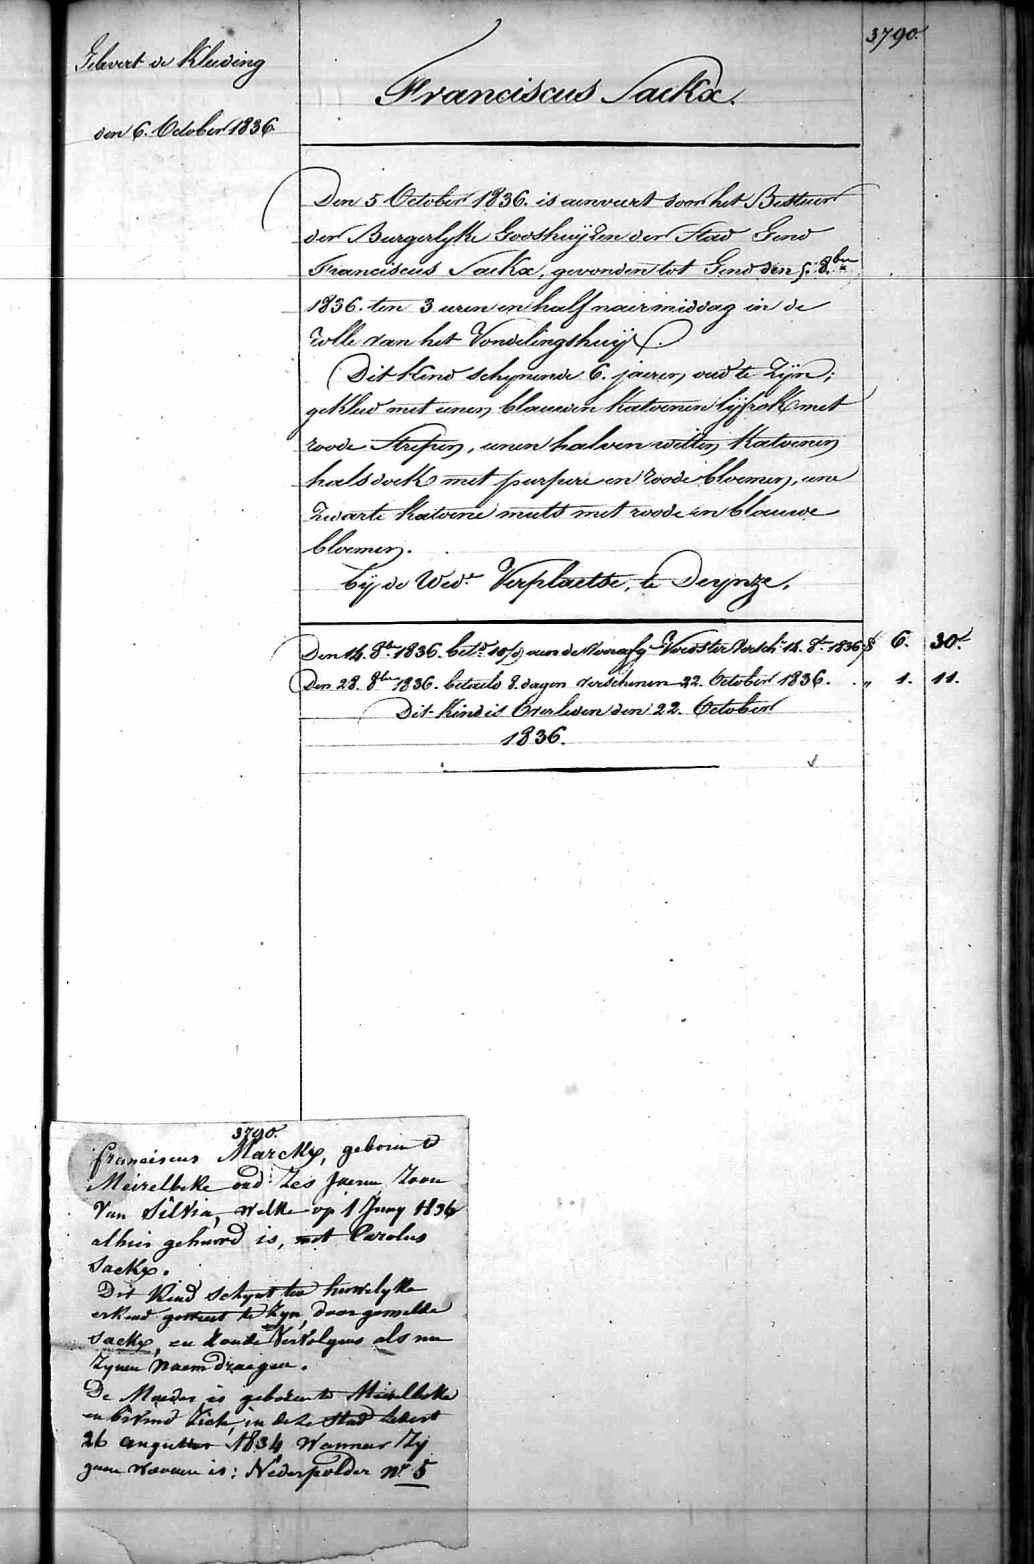 3790.
Gelevert de Kleeding
den 6. October 1836
Franciscus Sackx.
Den 5 October 1836. is aenveert door het Bestuer
der Burgerlyke Godshuijzen der Stad Gend
Franciscus Sackx, gevonden tot Gend den 5. 8.bre
1836. ten 3 uren en half naermiddag in de
rolle van het Vondelingshuijs.
Dit Kind schynende 6. jaeren oud te zijn;
gekleed met eenen blauwen katoenen lijfrok met
roode strepen, eenen halven witten katoenen
halsdoek met purpere en roode bloemen, eene
zwarte katoene muts met roode en blauwe
bloemen.
bij de Wed.e Verplaetse, te Deijnze.
Den 14. 8.br 1836. bet.d aen de Voedster versch.t 14. 8.br 1836 6. 30.
Den 28. 8.bre 1836. betaeld 8. dagen verschenen 22. October 1836. „ 1. 11.
Dit Kind is Overleden den 22. October
1836.
3790.
franciscus Marckx, geboren te
Meirelbeke oud zes jaeren zoon
van Silvia, welke op 1 Juny 1836
alhier gehuwd is, met Carolus
Sackx.
Dit Kind schynt ten huwelyke
erkend geweest te zyn, door gemelde
Sackx, en zoude vervolgens als nu
zynen naem draegen.
De Moeder is geboren te Meirelbeke
en bevind zich, in deze Stad sedert
26 augustus 1834 wanneer zy
gaen woonen is: Nederpolder N.r 5